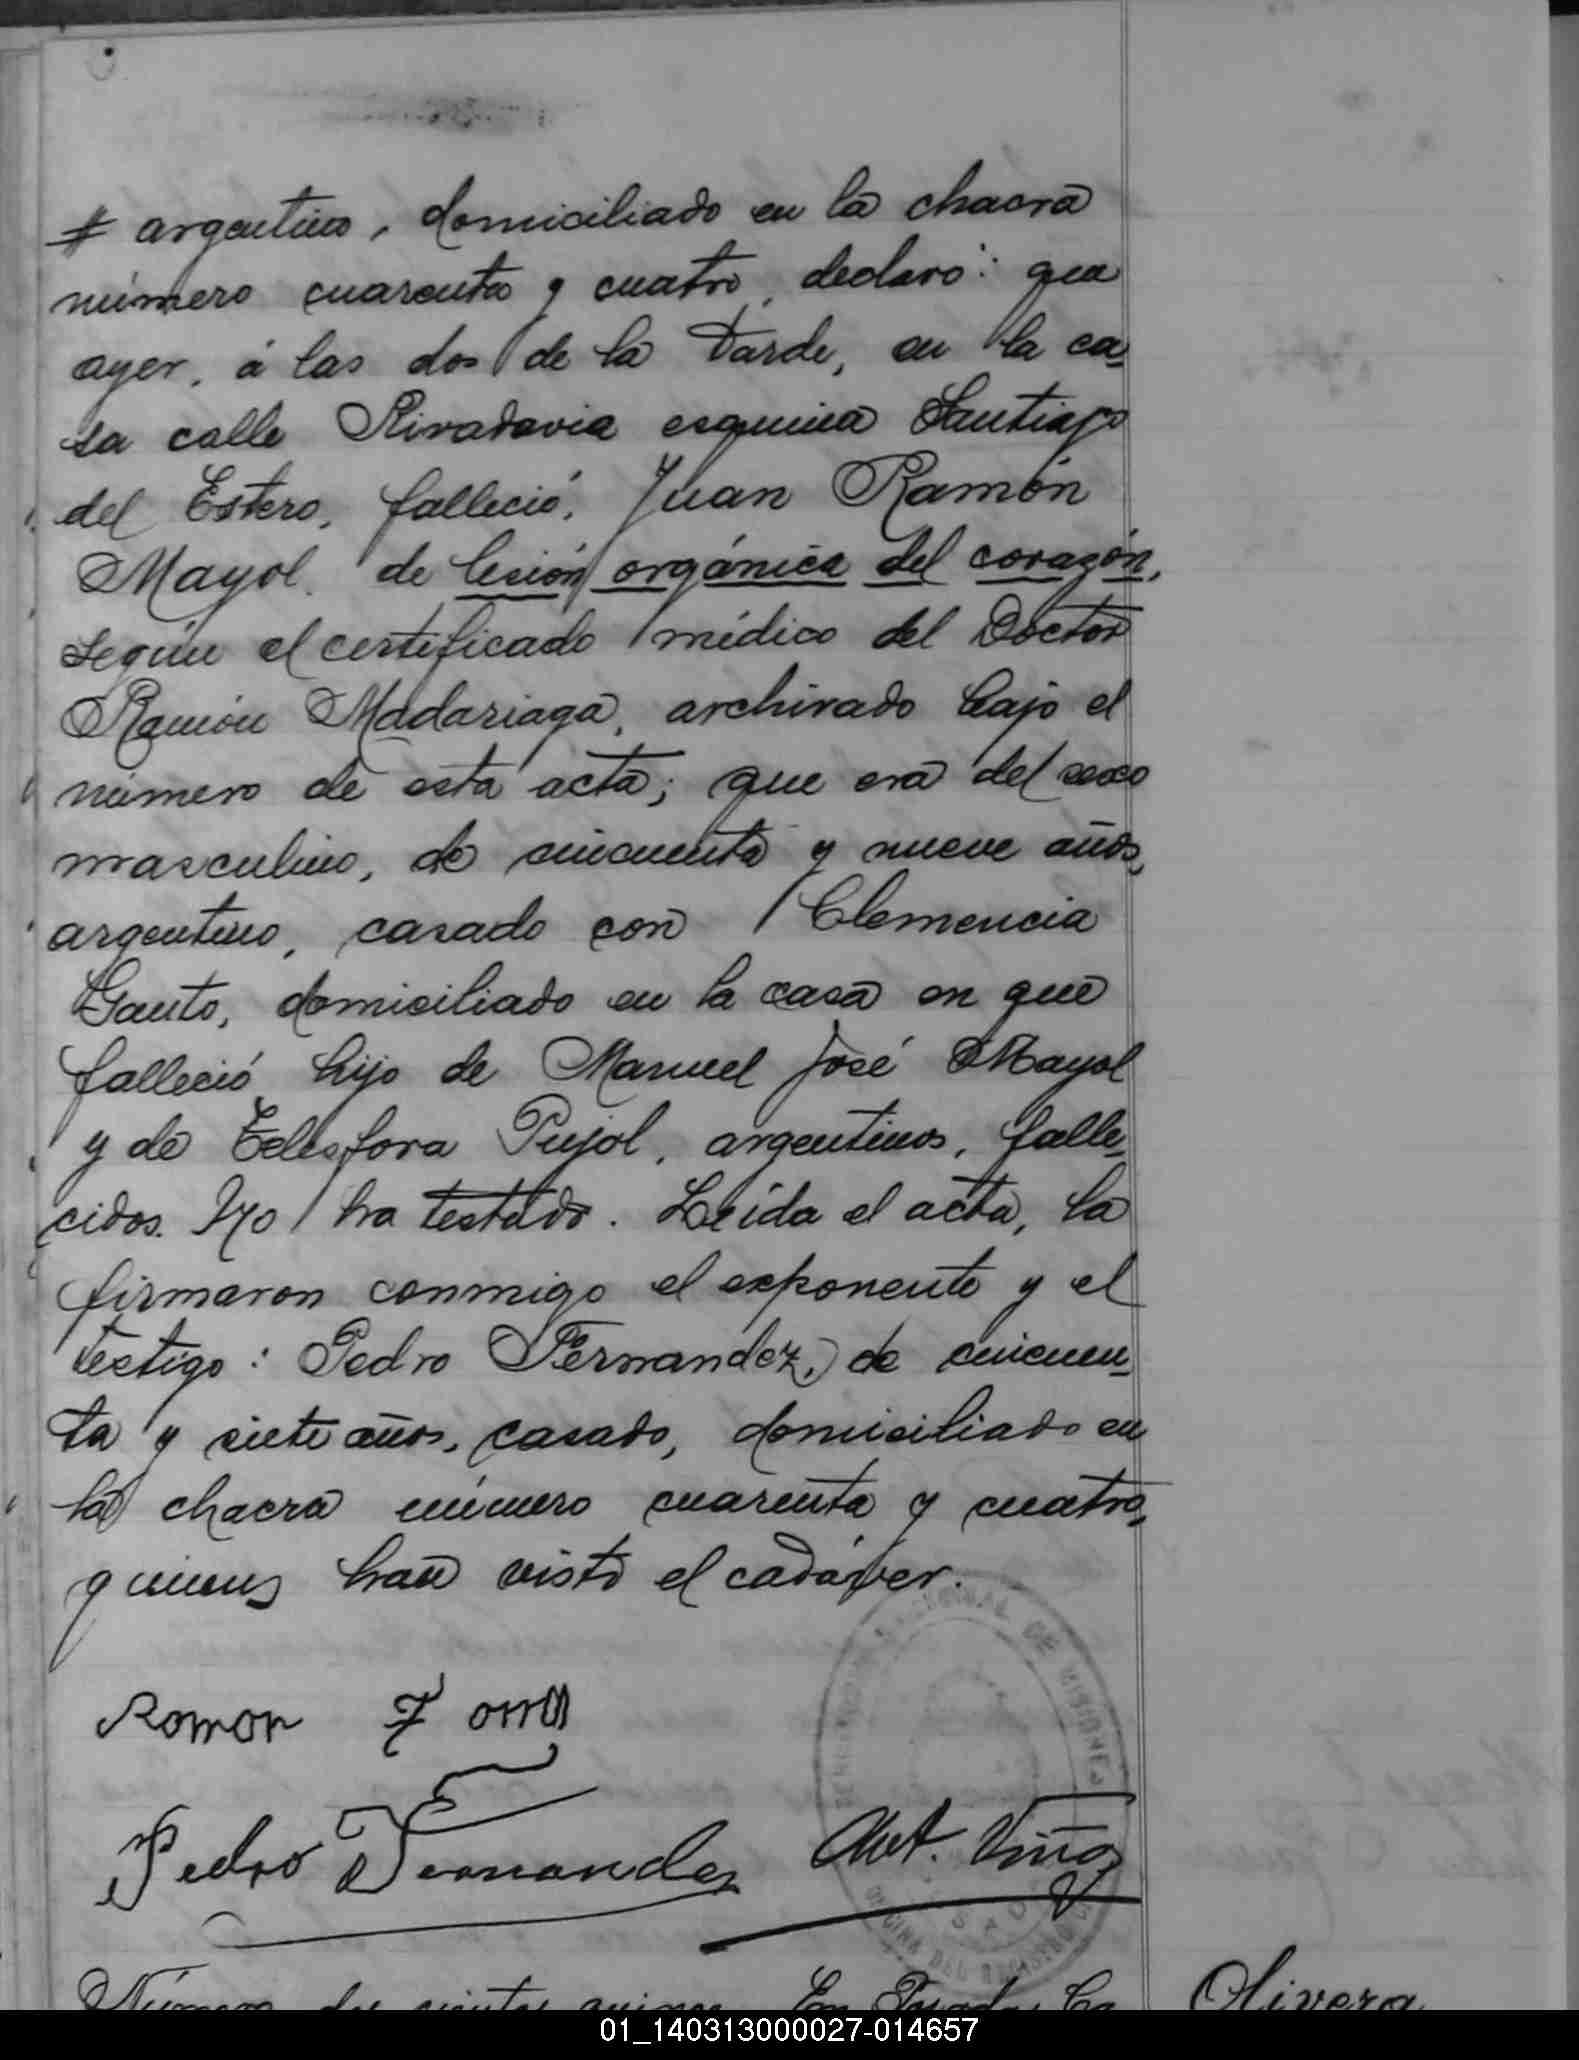 # argentino, domiciliado en la chacra
número cuarenta y cuatro, declaró: que
ayer, á las dos de la tarde, en la ca-
sa calle Rivadavia esquina Santiago
del Estero, falleció, Juan Ramón
Mayol, de lesión orgánica del corazón,
según el certificado médico del Doctor
Ramón Madariaga, archivado bajo el
número de esta acta; que era del sexo
masculino, de cincuenta y nueve años,
argentino, casado con Clemencia
Gauto, domiciliado en la casa en que
falleció, hijo de Manuel José Mayol
y de Telesfora Pujol, argentinos, falle-
cidos. No ha testado. Leída el acta, la
firmaron conmigo el exponente y el
testigo: Pedro Fernandez, de cincuen-
ta y siete años, casado, domiciliado en
la chacra número cuarenta y cuatro,
quienes han visto el cadáver.
Ramon
Pedro Fernandez Ant. Viña
NACIONAL DE MISIONES
OFICINA DEL REGISTRO
Número dos cientos quince. En Posadas, Ca
Olivera
01_140313000027-014657